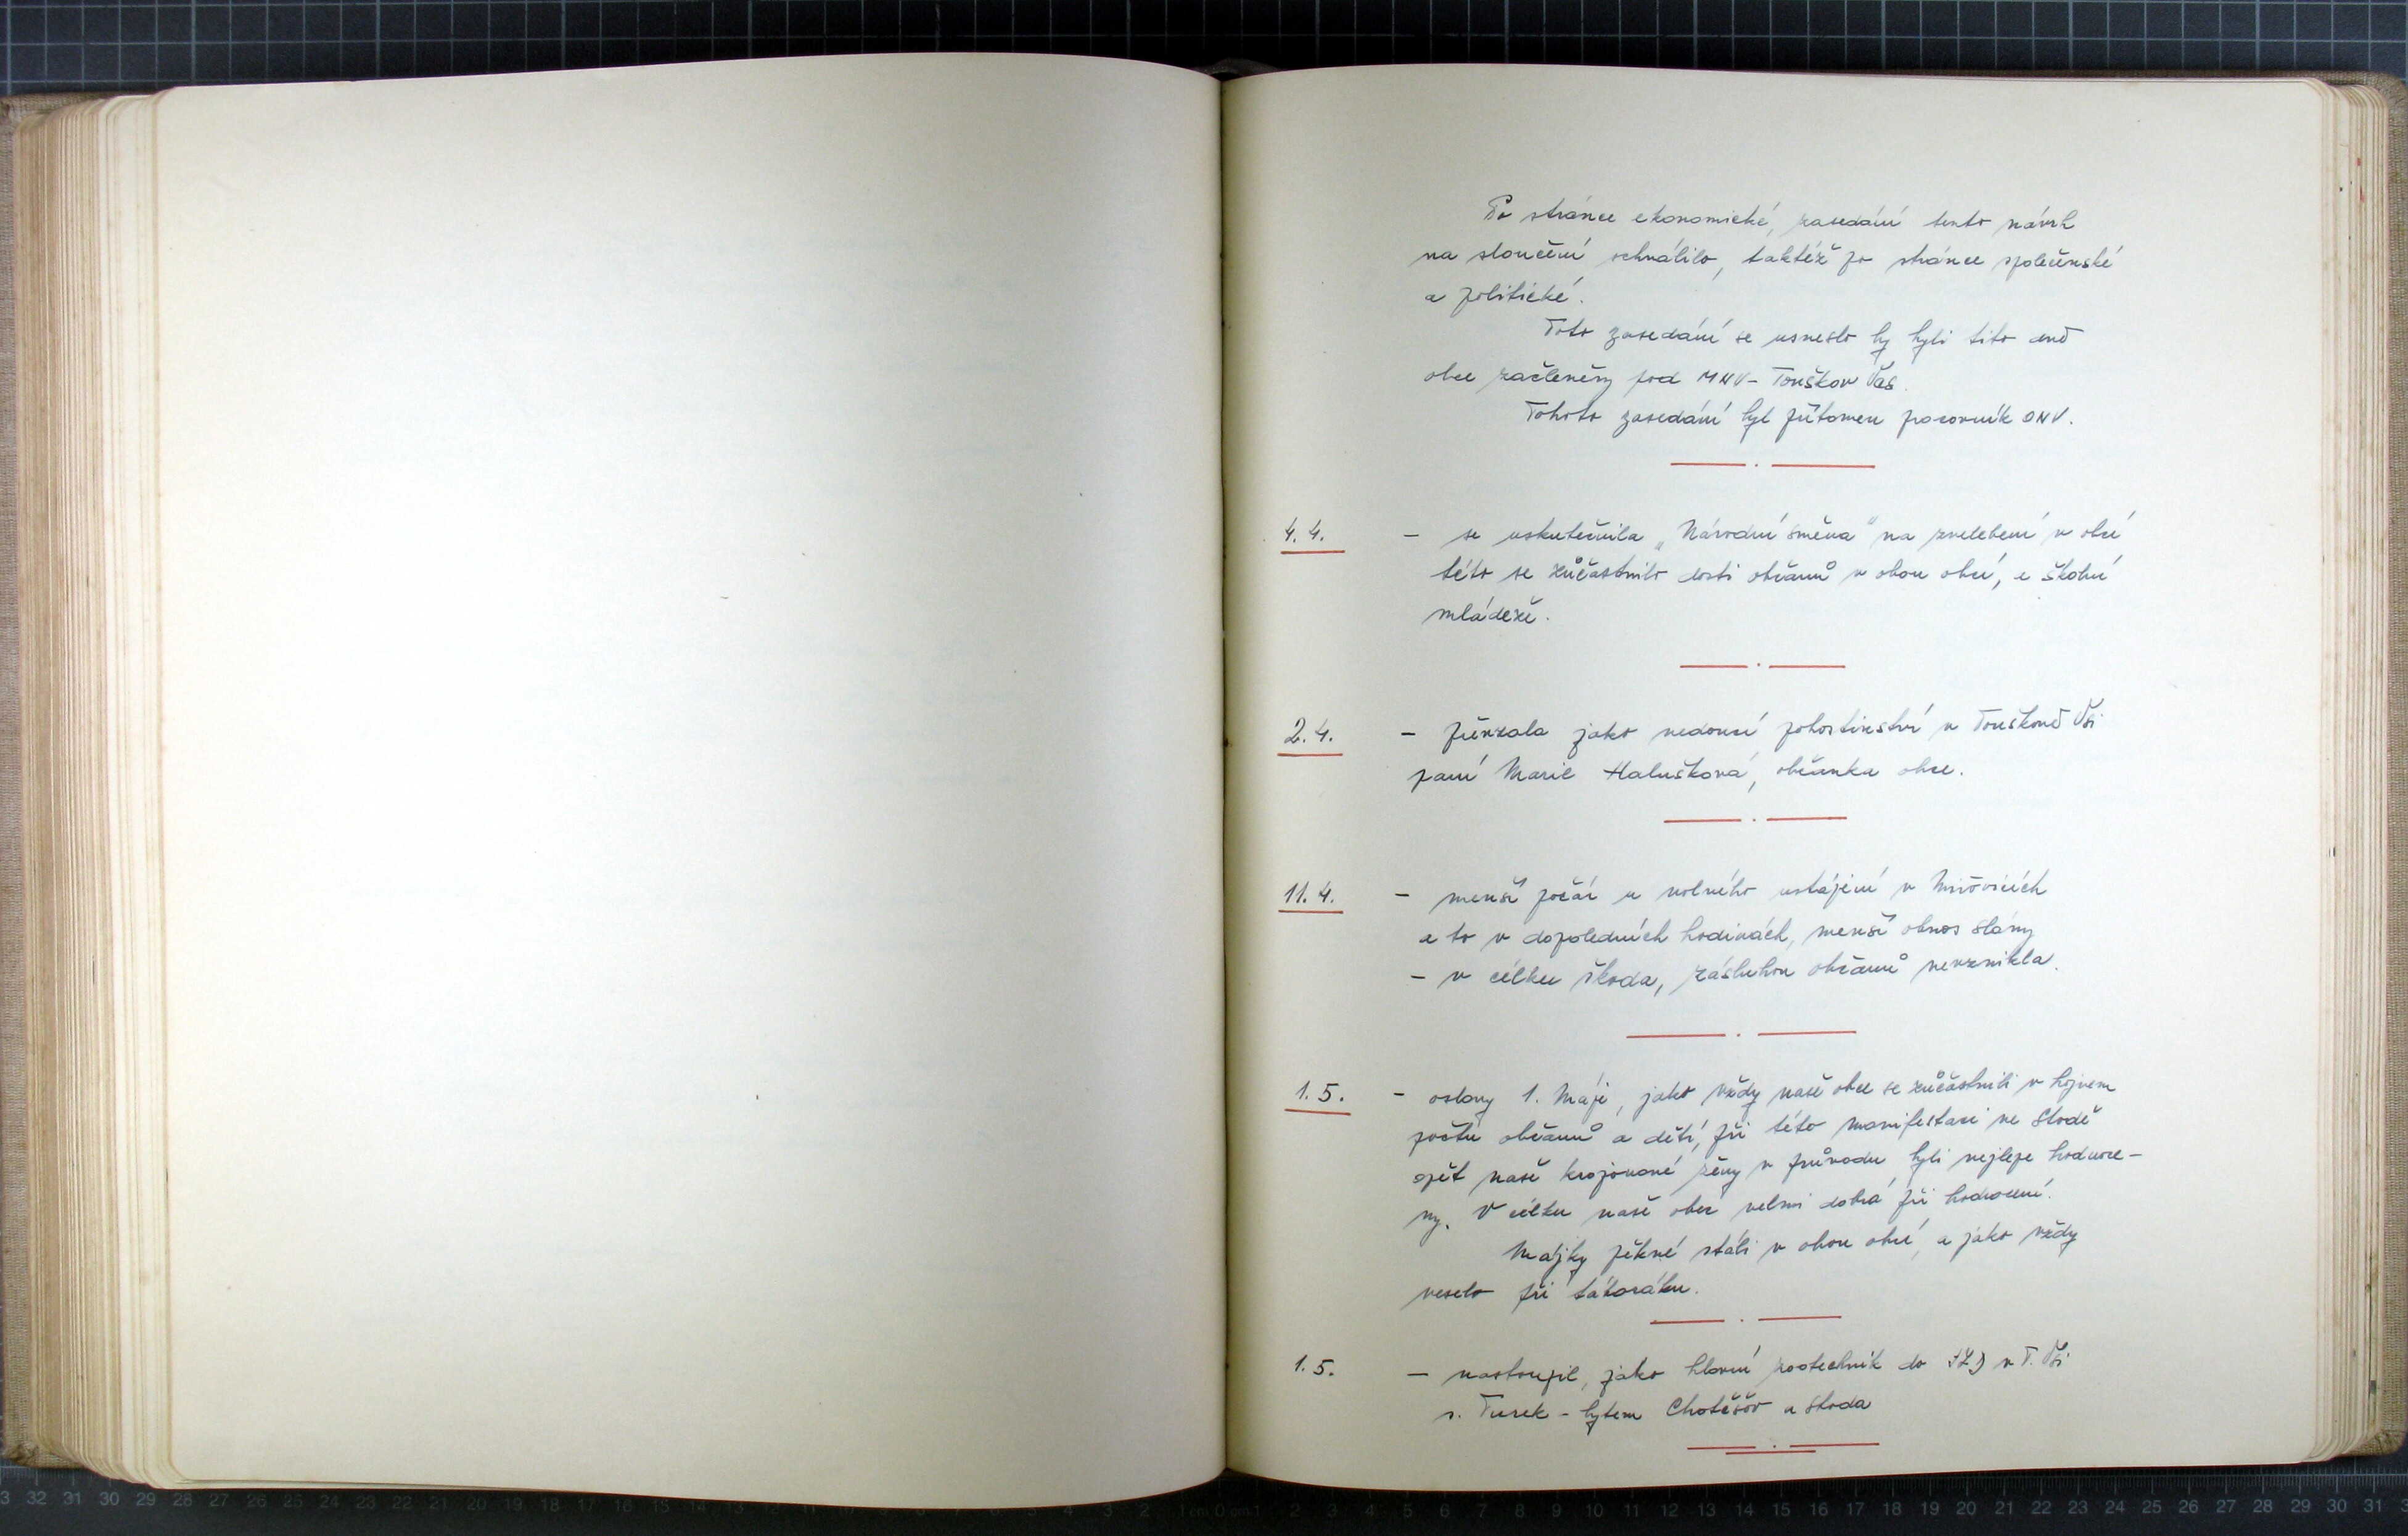 Po stránce ekonomické, zasedání tento návrh
na sloučení schválilo, taktéž po stránce společenské
a politické.
Toto zasedání se usneslo by byli tito dvě
obce začleněny pod MNV - Touškov Ves.
Tohoto zasedání byl přítomen pracovník ONV.
4. 4. - se uskutečnila „Národní směna" na zvelebení v obcí
této se zůčastnilo dosti občanů v obou obcí, a školní
mládeže.
2. 4. - převzala jako vedoucí pohostinství v Touškově Vsi
paní Marie Halušková, občanka obce.
11. 4. - menší počár u volného ustájení v Mířovicích
a to v dopoledních hodinách, menší obnos slámy
- v célku škoda, zásluhou občanů nevznikla.
1. 5. - oslavy 1. Máje, jako vždy naše obce se zůčastnili v hojném
počtu občanů a dětí, při této manifestaci ve Stodě
opět naše krojované ženy v průvodu byli nejlepe hodnoce-
ny. V célku naše obec velmi dobrá při hodnocení.
Májky pěkné stáli v obou obcí, a jako vždy
veselo při táboráku.
1. 5. - nastoupil, jako hlavní zootechnik do JZD v T. Vsi
s. Turek - bytem Chotěšov u Stoda
32 31 30 29 28 27 26 25 24 23 22 21 20 19 18 17 16 15 14 13 12 11 10 9 8 7 6 5 4 3 2 1 cm 0 cm 1 2 3 4 5 6 7 8 9 10 11 12 13 14 15 16 17 18 19 20 21 22 23 24 25 26 27 28 29 30 31